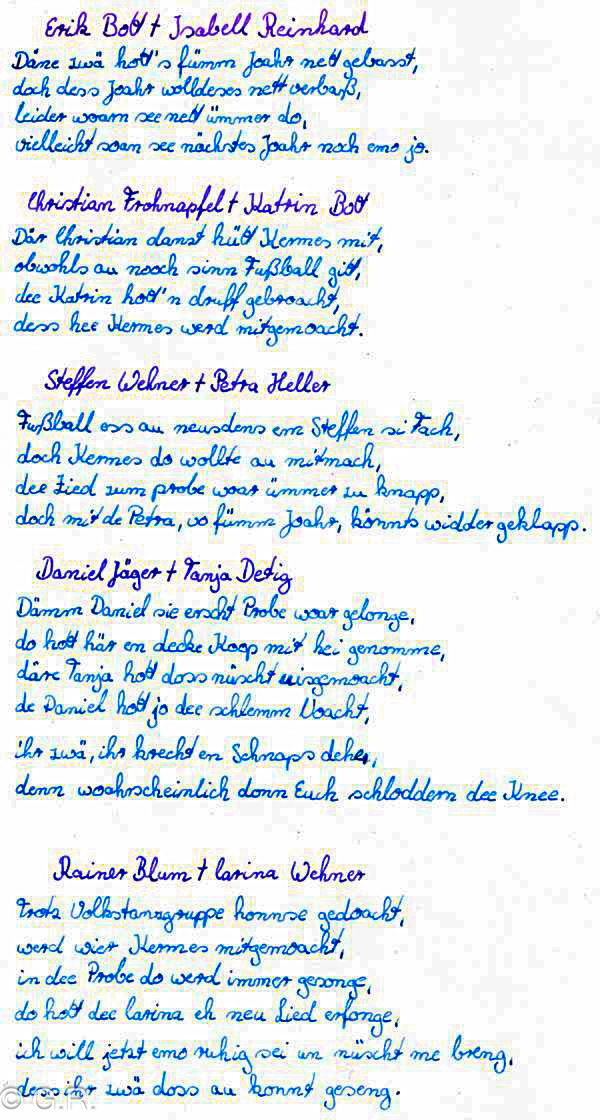 Erik Bott + Isabell Reinhard
Däne zwä hott's fümm Joahr nett gebasst,
doch dess Joahr wolldeses nett verbaß,
leider woarn see nett ümmer do,
vielleicht soan see nächstes Joahr noch emo jo.
Christian Frohnapfel + Katrin Bott
Där Christian danst hütt Kermes mit,
obwohls au nooch sinn Fußball gitt,
dee Katrin hott'n druff gebroacht,
dess hee Kermes werd mitgemoacht.
Steffen Wehner + Petra Heller
Fußball oss au neusdens em Steffen si Fach,
doch Kermes do wollte au mitmach,
dee Zied zum probe woar ümmer zu knapp,
doch mit de Petra, vo fümm Joahr, könnts widder geklapp.
Daniel Jäger + Tanja Detig
Dämm Daniel sie erscht Probe woar gelonge,
do hott här en decke Koop mit hei genomme,
däre Tanja hott doss nüscht uisgemoacht,
de Daniel hott jo dee schlemm Noacht,
ihr zwä, ihr krecht en Schnaps deher,
denn woahrscheinlich donn Euch schloddern dee Knee.
Rainer Blum + Carina Wehner
Trotz Volkstanzgruppe honnse gedoacht,
werd wier Kermes mitgemoacht,
in dee Probe do werd immer gesonge,
do hott dee Carina eh neu Lied erfonge,
ich will jetzt emo ruhig sei un nüscht me breng,
dess ihr zwä doss au konnt geseng.
© G.R.